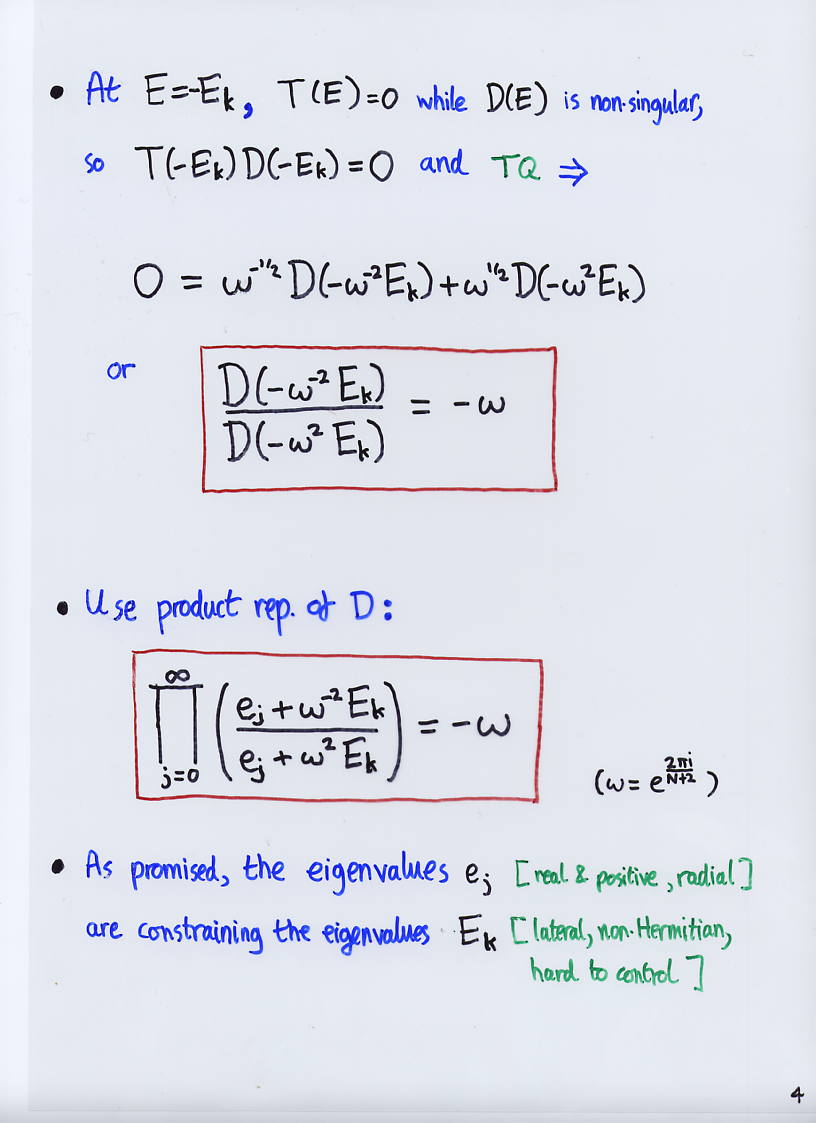 • At E=-Eₖ, T(E)=0 while D(E) is non-singular,
so T(-Eₖ)D(-Eₖ)=0 and TQ ⇒
0 = ω^{-1/2} D(-ω^{-2}Eₖ) + ω^{1/2} D(-ω²Eₖ)
or D(-ω^{-2} Eₖ) / D(-ω² Eₖ) = -ω
• Use product rep. of D:
∏_{j=0}^{∞} ( (eⱼ + ω^{-2} Eₖ) / (eⱼ + ω² Eₖ) ) = -ω
(ω = e^{2πi/(N+2)})
• As promised, the eigenvalues eⱼ [real & positive, radial]
are constraining the eigenvalues Eₖ [lateral, non-Hermitian,
hard to control]
4